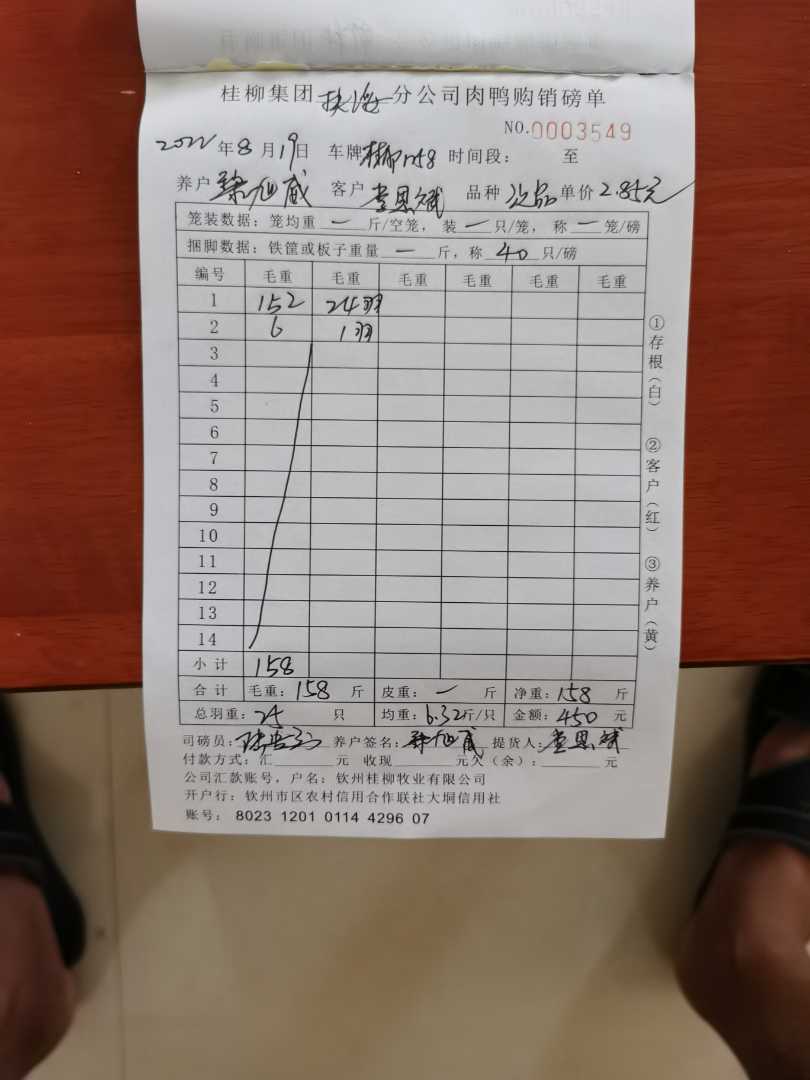 桂柳集团 分公司肉鸭购销磅单
NO.0003549
2022年8月19日 车牌 时间段: 至
养户 客户 品种 次品 单价 2.85元
笼装数据: 笼均重 一 斤/空笼, 装 一 只/笼, 称 一 笼/磅
捆脚数据: 铁筐或板子重量 一 斤, 称 40 只/磅
编号 毛重 毛重 毛重 毛重 毛重 毛重
1 152 24羽
2 6 1羽
3
4
5
6
7
8
9
10
11
12
13
14
小计 158
合计 毛重: 158 斤 皮重: 一 斤 净重: 158 斤
总羽重: 25 只 均重: 6.32斤/只 金额: 450 元
司磅员: 养户签名: 提货人:
付款方式: 汇 元 收现 元欠(余): 元
公司汇款账号, 户名: 钦州桂柳牧业有限公司
开户行: 钦州市区农村信用合作联社大垌信用社
账号: 8023 1201 0114 4296 07
①存根(白)
②客户(红)
③养户(黄)